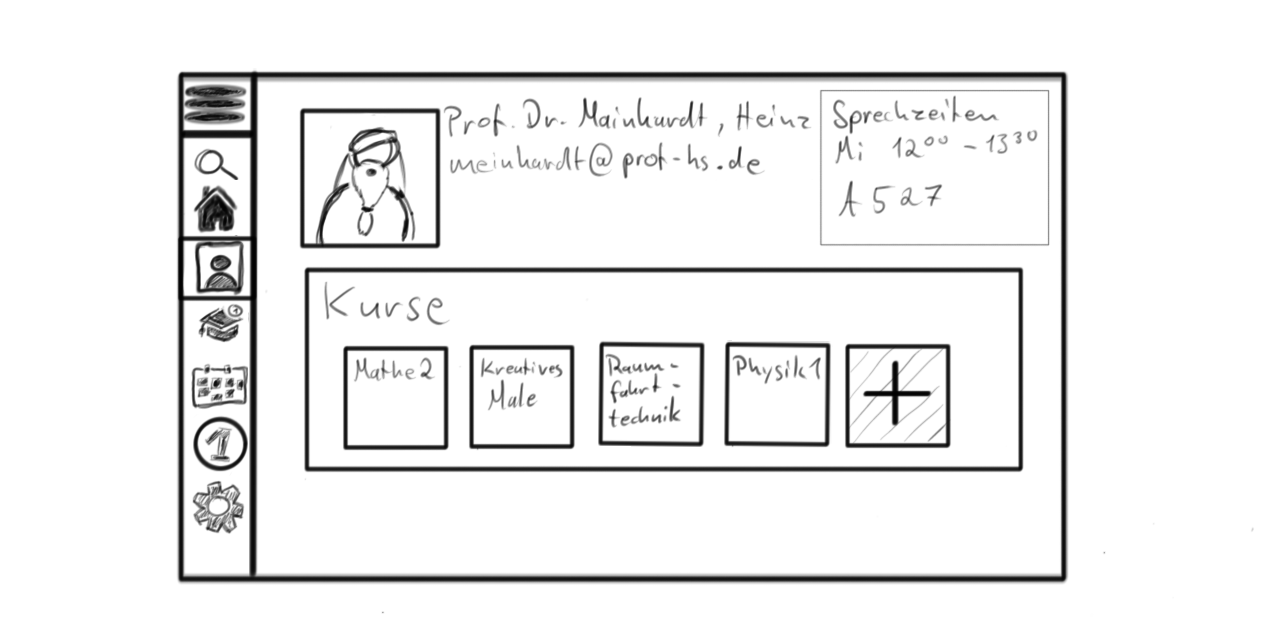 Prof. Dr. Mainhardt, Heinz
meinhardt@prof-hs.de
Sprechzeiten
Mi 12⁰⁰ - 13³⁰
A527
Kurse
Mathe2
Kreatives
Male
Raum-
fahrt-
technik
Physik1
1